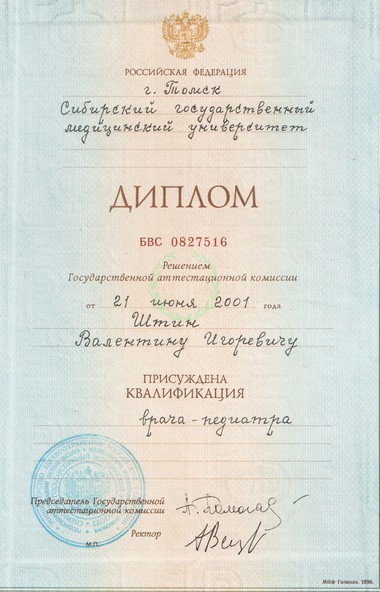 РОССИЙСКАЯ ФЕДЕРАЦИЯ
г. Томск
Сибирский государственный
медицинский университет
ДИПЛОМ
БВС 0827516
Решением
Государственной аттестационной комиссии
от 21 июня 2001 года
Штин
Валентину Игоревичу
ПРИСУЖДЕНА
КВАЛИФИКАЦИЯ
врача-педиатра
Председатель Государственной
аттестационной комиссии
Ректор
М.П.
МПФ Гознака. 1996.